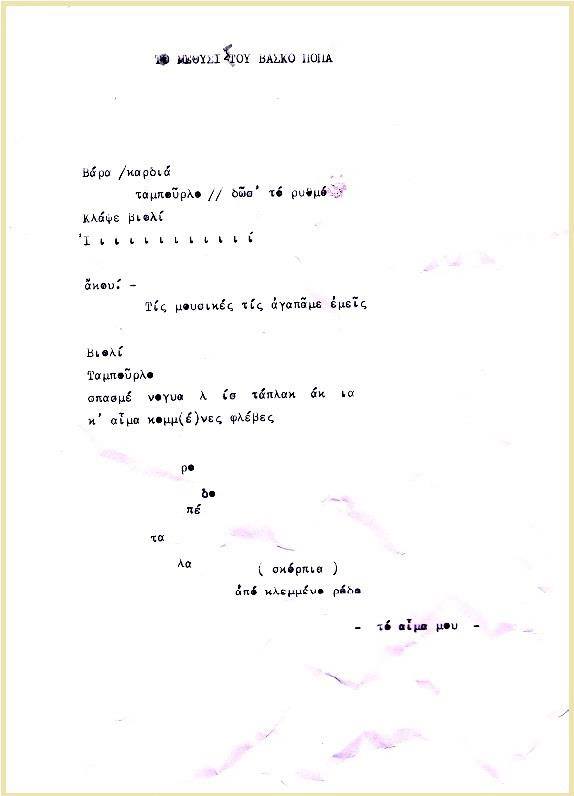 ΤΟ ΜΕΘΥΣΙ ΤΟΥ ΒΑΣΚΟ ΠΟΠΑ
Βάρα /καρδιά
ταμποῦρλο // δῶσ' τό ρυθμό
Κλάψε βιολί
Ἰ ι ι ι ι ι ι ι ι ι ι ί
ἄκουί –
Τίς μουσικές τίς ἀγαπᾶμε ἐμεῖς
Βιολί
Ταμποῦρλο
σπασμέ νογυα λ ίσ τάπλακ άκ ια
κ' αἷμα κομμ(έ)νες φλέβες
ρο
δο
πέ
τα
λα
( σκόρπια )
ἀπό κλεμμένο ρόδο
– τό αἷμα μου –